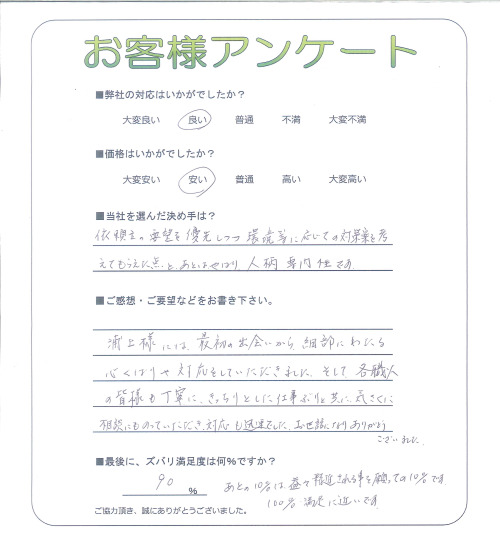 お客様アンケート
■弊社の対応はいかがでしたか？
大変良い 良い 普通 不満 大変不満
■価格はいかがでしたか？
大変安い 安い 普通 高い 大変高い
■当社を選んだ決め手は？
依頼主の要望を優先しつつ環境等に応じての対策案を考
えてもらえた点と、あとはやはり人柄専門性です
■ご感想・ご要望などをお書き下さい。
浦上様には、最初の出会いから細部にわたる
心くばりや対応をしていただきました。そして、各職人
の皆様も丁寧に、きっちりとした仕事ぶりと共に、気さくに
相談にものっていただき、対応も迅速でした。お世話になりありがとう
ございました。
■最後に、ズバリ満足度は何%ですか？
90 %
あとの10%は益々 される事を願っての10%です
100%満足に近いです
ご協力頂き、誠にありがとうございました。